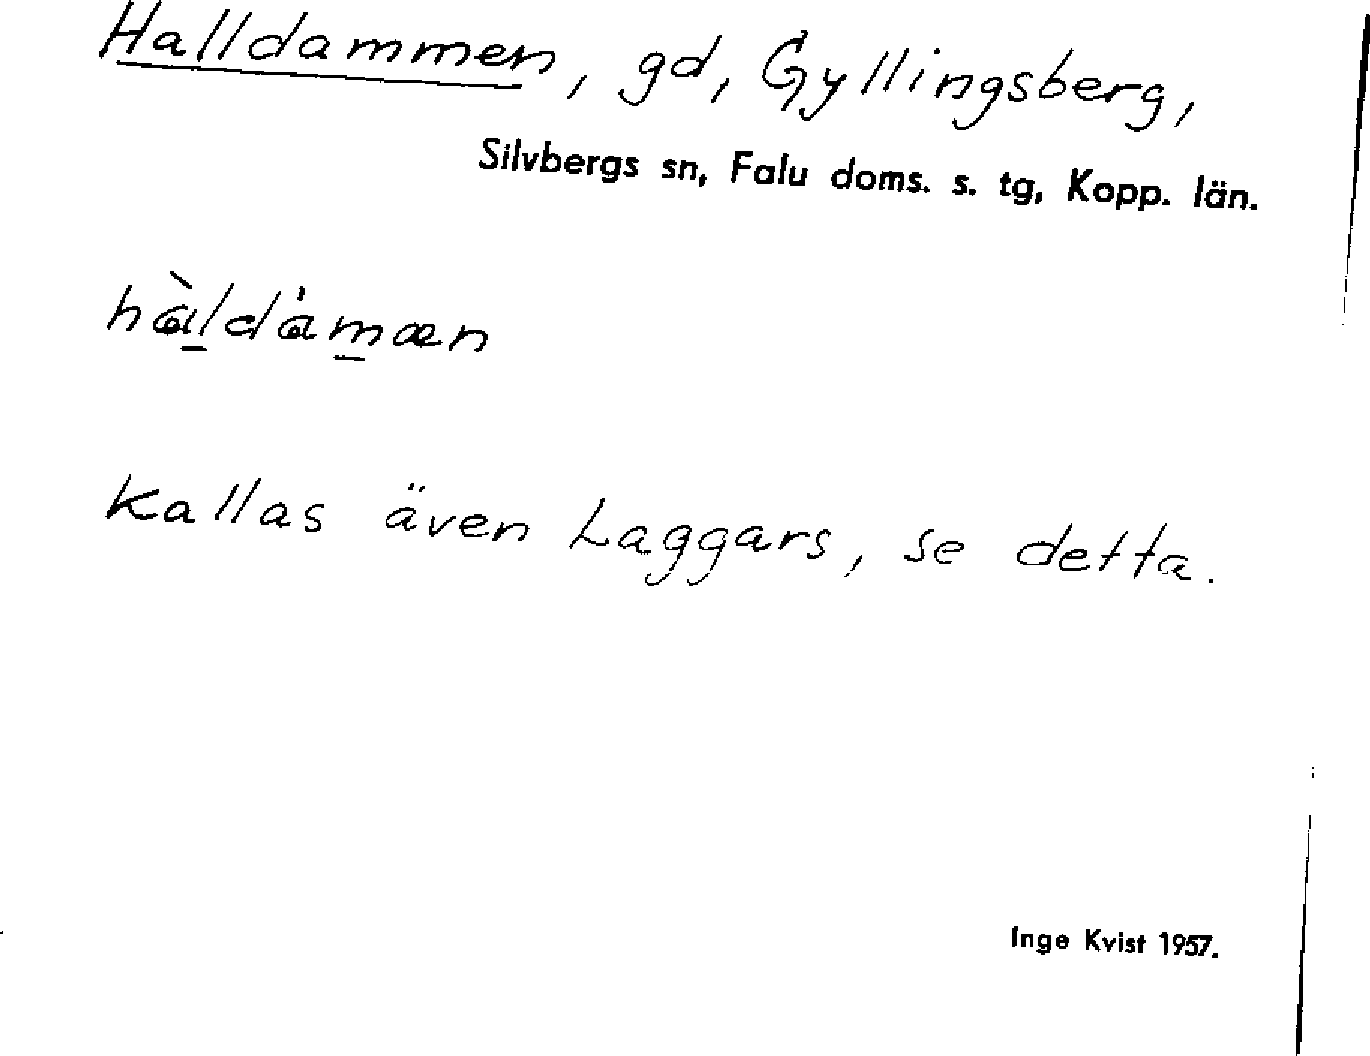 Halldammen, gd, Gyllingsberg,
Silvbergs sn, Falu doms. s. tg, Kopp. län.
hàldàmæn
Kallas även Laggars, se detta.
Inge Kvist 1957.